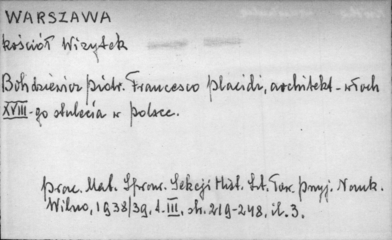 WARSZAWA
kościół Wizytek
Bohdziewicz Piotr. Francesco Placidi, architekt-włoch
XVIII-go stulecia w Polsce.
Prac. Mat. Spraw. Sekcji Hist. Szt. Tow. Przyj. Nauk.
Wilno, 1938/39, t. III, str. 219-248, il. 3.